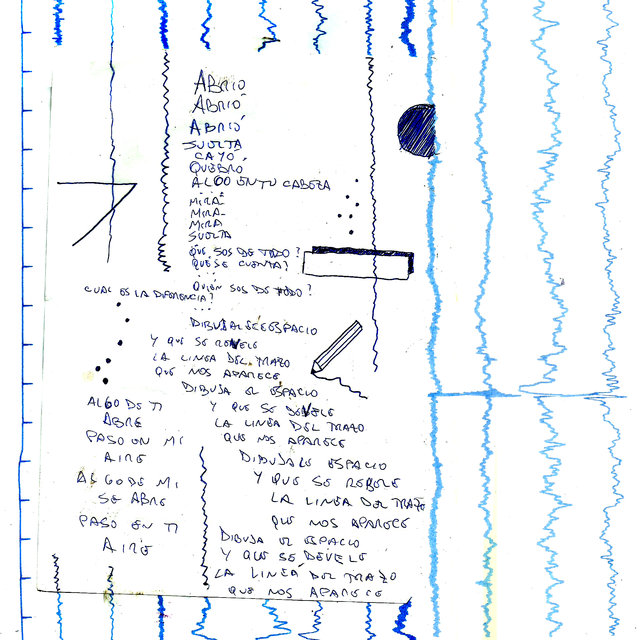 ABRIO
ABRIÓ
ABRIÓ
SUELTA
CAYÓ
QUEBRÓ
ALGO EN TU CABEZA
MIRÁ
MIRA
MIRA
SUELTA
QUE SOS DE TODO?
QUE SE CUENTA?
...
QUIÉN SOS DE TODO?
CUAL ES LA DIFERENCIA?
...
DIBUJALE ESPACIO
Y QUE SE REVELE
LA LINEA DEL TRAZO
QUE NOS APARECE
DIBUJA EL ESPACIO
Y QUE SE DEVELE
LA LINEA DEL TRAZO
QUE NOS APARECE
DIBUJALE ESPACIO
Y QUE SE REBELE
LA LINEA DEL TRAZO
QUE NOS APARECE
DIBUJA EL ESPACIO
Y QUE SE DEVELE
LA LINEA DEL TRAZO
QUE NOS APARECE
ALGO DE TI
ABRE
PASO EN MI
AIRE
ALGO DE MI
SE ABRE
PASO EN TI
AIRE